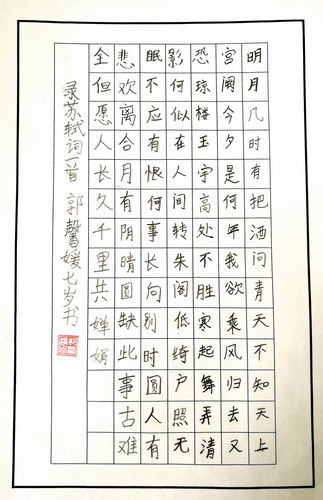 明月几时有把酒问青天不知天上
宫阙今夕是何年我欲乘风归去又
恐琼楼玉宇高处不胜寒起舞弄清
影何似在人间转朱阁低绮户照无
眠不应有恨何事长向别时圆人有
悲欢离合月有阴晴圆缺此事古难
全但愿人长久千里共婵娟
录苏轼词一首 郭馨媛七岁书